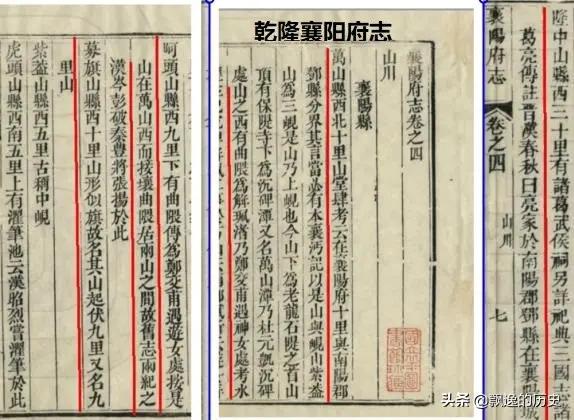 呵頭山縣西九里下有曲隈傳為鄭交甫遇遊女處按是
山在萬山西而接壤曲隈居兩山之間故舊志兩紀之
漢岑彭破秦豐將張揚於此
募旗山縣西十里山形似旗故名其山起伏九里又名九
里山
紫蓋山縣西五里古稱中峴
虎頭山縣西南五里上有濯筆池云漢昭烈嘗濯筆於此
乾隆襄阳府志
襄陽府志卷之四
山川
襄陽縣
萬山縣西北十里山堂肆考云在襄陽府十里與南陽郡
鄧縣分界其言當必有本襄沔記以是山與峴山紫蓋
山為三峴是山乃上峴也今山下為老龍石隄之首山
頂有保隄寺下為沉碑潭又名萬山潭乃杜元凱沉碑
處山之西有曲隈為解珮渚乃鄭交甫遇神女處考水
隆中山縣西三十里有諸葛武侯祠另詳祀典三國志諸
葛亮傳註晉漢春秋曰亮家於南陽郡鄧縣在襄陽城
襄陽府志
卷之四
山川
七
头条 @飘逸的历史